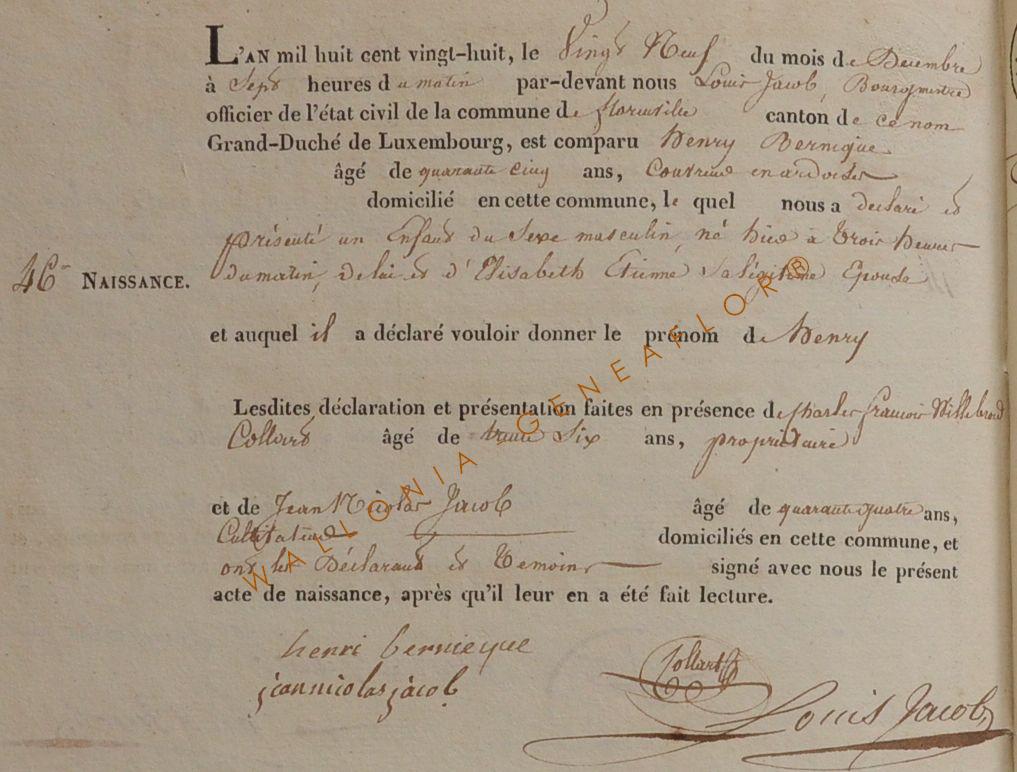 L'AN mil huit cent vingt-huit, le Vingt Neuf du mois de Decembre
à Sept heures du matin par-devant nous Louis Jacob, Bourgmestre
officier de l'état civil de la commune de florenville canton de ce nom
Grand-Duché de Luxembourg, est comparu henry Bernieque
âgé de quarante cinq ans, Couvreur en ardoises
domicilié en cette commune, le quel nous a declaré et
présenté un Enfant du Sexe masculin, né hier à trois heures
46e NAISSANCE. du matin, de lui et d'Elisabeth Etienne Sa légitime Epouse
et auquel il a déclaré vouloir donner le prénom de henry
Lesdites déclaration et présentation faites en présence de Charles francois Willebrord
Collard âgé de trente Six ans, proprietaire
et de Jean Nicolas Jacob âgé de quarante quatre ans,
Cultivateur domiciliés en cette commune, et
ont les Déclarant et temoins signé avec nous le présent
acte de naissance, après qu'il leur en a été fait lecture.
henri bernieque
Collart
jean nicolas jacob
Louis Jacob
WALLONIA - GENEAFLOR®